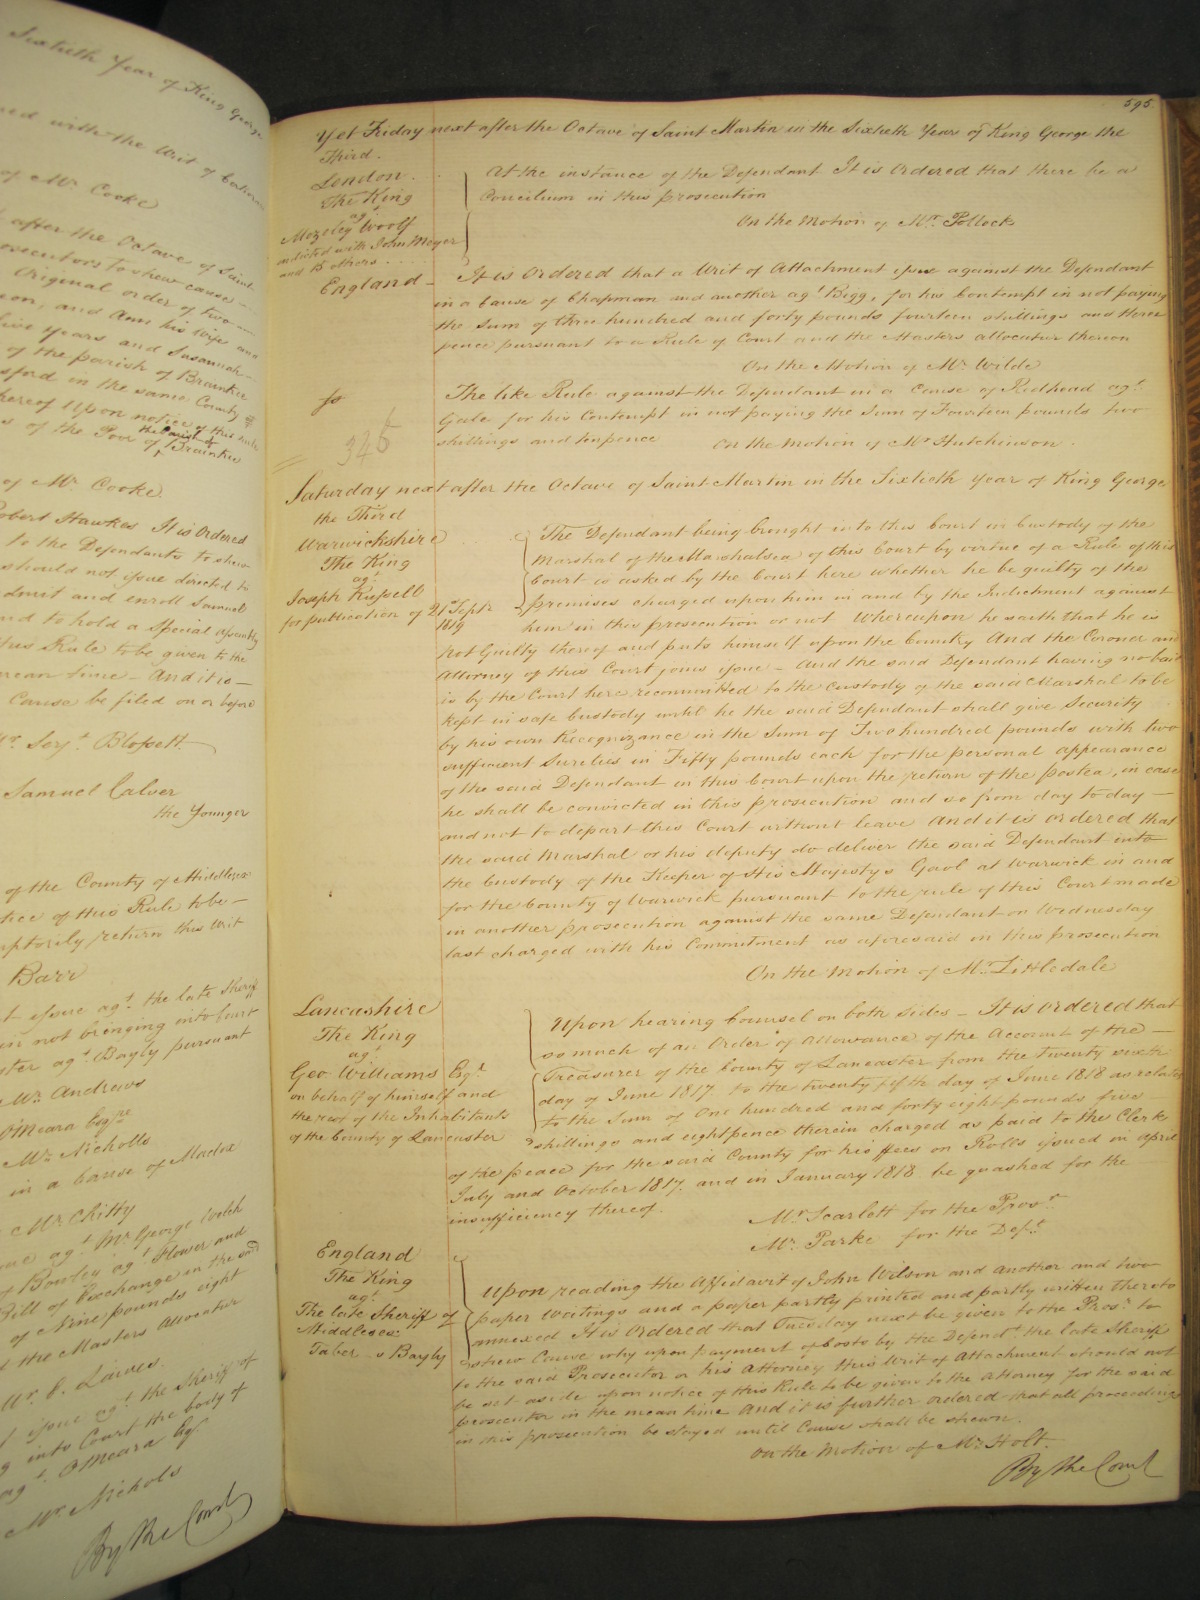 Sixtieth Year of King George
with the Writ of
of Mr. Cooke
after the Octave of Saint
prosecutors to shew cause
Original order of two
and Ann his wife and
five years and Susannah
of the parish of Braintree
in the same County
hereof Upon notice of this rule
the Parish of
s of the Poor of Braintree
of Mr. Cooke
Robert Hawkes It is Ordered
to the Defendants to shew
should not issue directed to
admit and enroll Samuel
and to hold a Special assembly
this Rule to be given to the
mean time - And it is -
Cause be filed on or before
Mr. Serjt. Blossett
Samuel Calver
the Younger
of the County of Middlesex
notice of this Rule to be -
peremptorily return this Writ
Barr
issue agt. the late Sheriff
in not bringing into Court
agt. Bayly pursuant
Mr. Andrews
O'Meara Esqre.
Mr. Nicholls
in a Cause of
Mr. Chitty
issue agt. Mr. George Welch
of Bowley agt. Flower and
Bill of Exchange in the said
of Nine pounds eight
the Masters Allocatur
Mr. E. Lawes.
issue agt. the Sheriff of
into Court the body of
agt. O'Meara Esq.
Mr. Nichols
By the Court
595.
Yet Friday next after the Octave of Saint Martin in the Sixtieth Year of King George the
Third.
London.
The King
agt.
Mozeley Woolf
indicted with John Meyer
and 15 others
At the instance of the Defendant It is Ordered that there be a
Concilium in this prosecution
On the Motion of Mr. Pollock
England
It is Ordered that a Writ of Attachment issue against the Defendant
in a Cause of Chapman and another agt. Bigg, for his Contempt in not paying
the Sum of three hundred and forty pounds fourteen shillings and three
pence pursuant to a Rule of Court and the Masters allocatur thereon
On the Motion of Mr. Wilde
The like Rule against the Defendant in a Cause of Redhead agt.
Gale for his Contempt in not paying the Sum of Fourteen pounds two
shillings and tenpence On the Motion of Mr. Hutchinson.
346
Saturday next after the Octave of Saint Martin in the Sixtieth Year of King George
the Third
Warwickshire
The King
agt.
Joseph Russell
for publication of 21st. Septr.
1819
The Defendant being brought into this Court in Custody of the
Marshal of the Marshalsea of this Court by virtue of a Rule of this
Court is asked by the Court here whether he be guilty of the
premises charged upon him in and by the Indictment against
him in this prosecution or not Whereupon he saith that he is
not Guilty thereof and puts himself upon the Country And the Coroner and
Attorney of this Court joins issue - And the said Defendant having no bail
is by the Court here recommitted to the Custody of the said Marshal to be
kept in safe Custody until he the said Defendant shall give Security
by his own Recognizance in the Sum of Two hundred pounds with two
sufficient Sureties in Fifty pounds each for the personal appearance
of the said Defendant in this Court upon the return of the postea, in case
he shall be convicted in this prosecution and so from day to day -
and not to depart this Court without leave And it is ordered that
the said Marshal or his deputy do deliver the said Defendant into
the Custody of the Keeper of His Majesty's Gaol at Warwick in and
for the County of Warwick pursuant to the rule of this Court made
in another prosecution against the same Defendant on Wednesday
last charged with his Commitment as aforesaid in this prosecution
On the Motion of Mr. Littledale
Lancashire
The King
agt.
Geo. Williams Esqr.
on behalf of himself and
the rest of the Inhabitants
of the County of Lancaster
Upon hearing Counsel on both sides - It is ordered that
so much of an Order of Allowance of the Account of the -
Treasurer of the County of Lancaster from the twenty sixth
day of June 1817 to the twenty fifth day of June 1818 as relates
to the Sum of One hundred and forty eight pounds five
shillings and eightpence therein charged as paid to the Clerk
of the peace for the said County for his fees on Rolls issued in April
July and October 1817. and in January 1818 be quashed for the
insufficiency thereof.
Mr. Scarlett for the Prosr.
Mr. Parke for the Deft.
England
The King
agt.
The late Sheriff of
Middlesex
Taber v Bayly
Upon reading the Affidavit of John Wilson and another and two
paper Writings and a paper partly printed and partly written thereto
annexed It is Ordered that Tuesday next be given to the Prosr. to
shew Cause why upon payment of Costs by the Defendt. the late Sheriff
to the said Prosecutor or his Attorney this Writ of Attachment should not
be set aside upon notice of this Rule to be given to the Attorney for the said
prosecutor in the mean time And it is further ordered that all proceedings
in this prosecution be stayed until Cause shall be shewn.
On the Motion of Mr. Holt.
By the Court